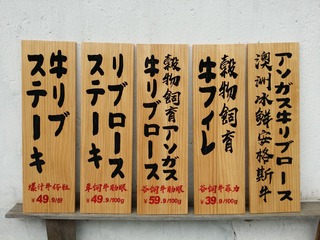 牛リブ
ステーキ
爆汁牛仔粒
¥49.9/份
リブロース
ステーキ
草飼牛肋眼
¥49.9/100g
穀物飼育アンガス
牛リブロース
谷飼牛肋眼
¥59.9/100g
穀物飼育
牛フィレ
谷飼牛菲力
¥39.9/100g
アンガス牛リブロース
澳洲冰鮮安格斯牛